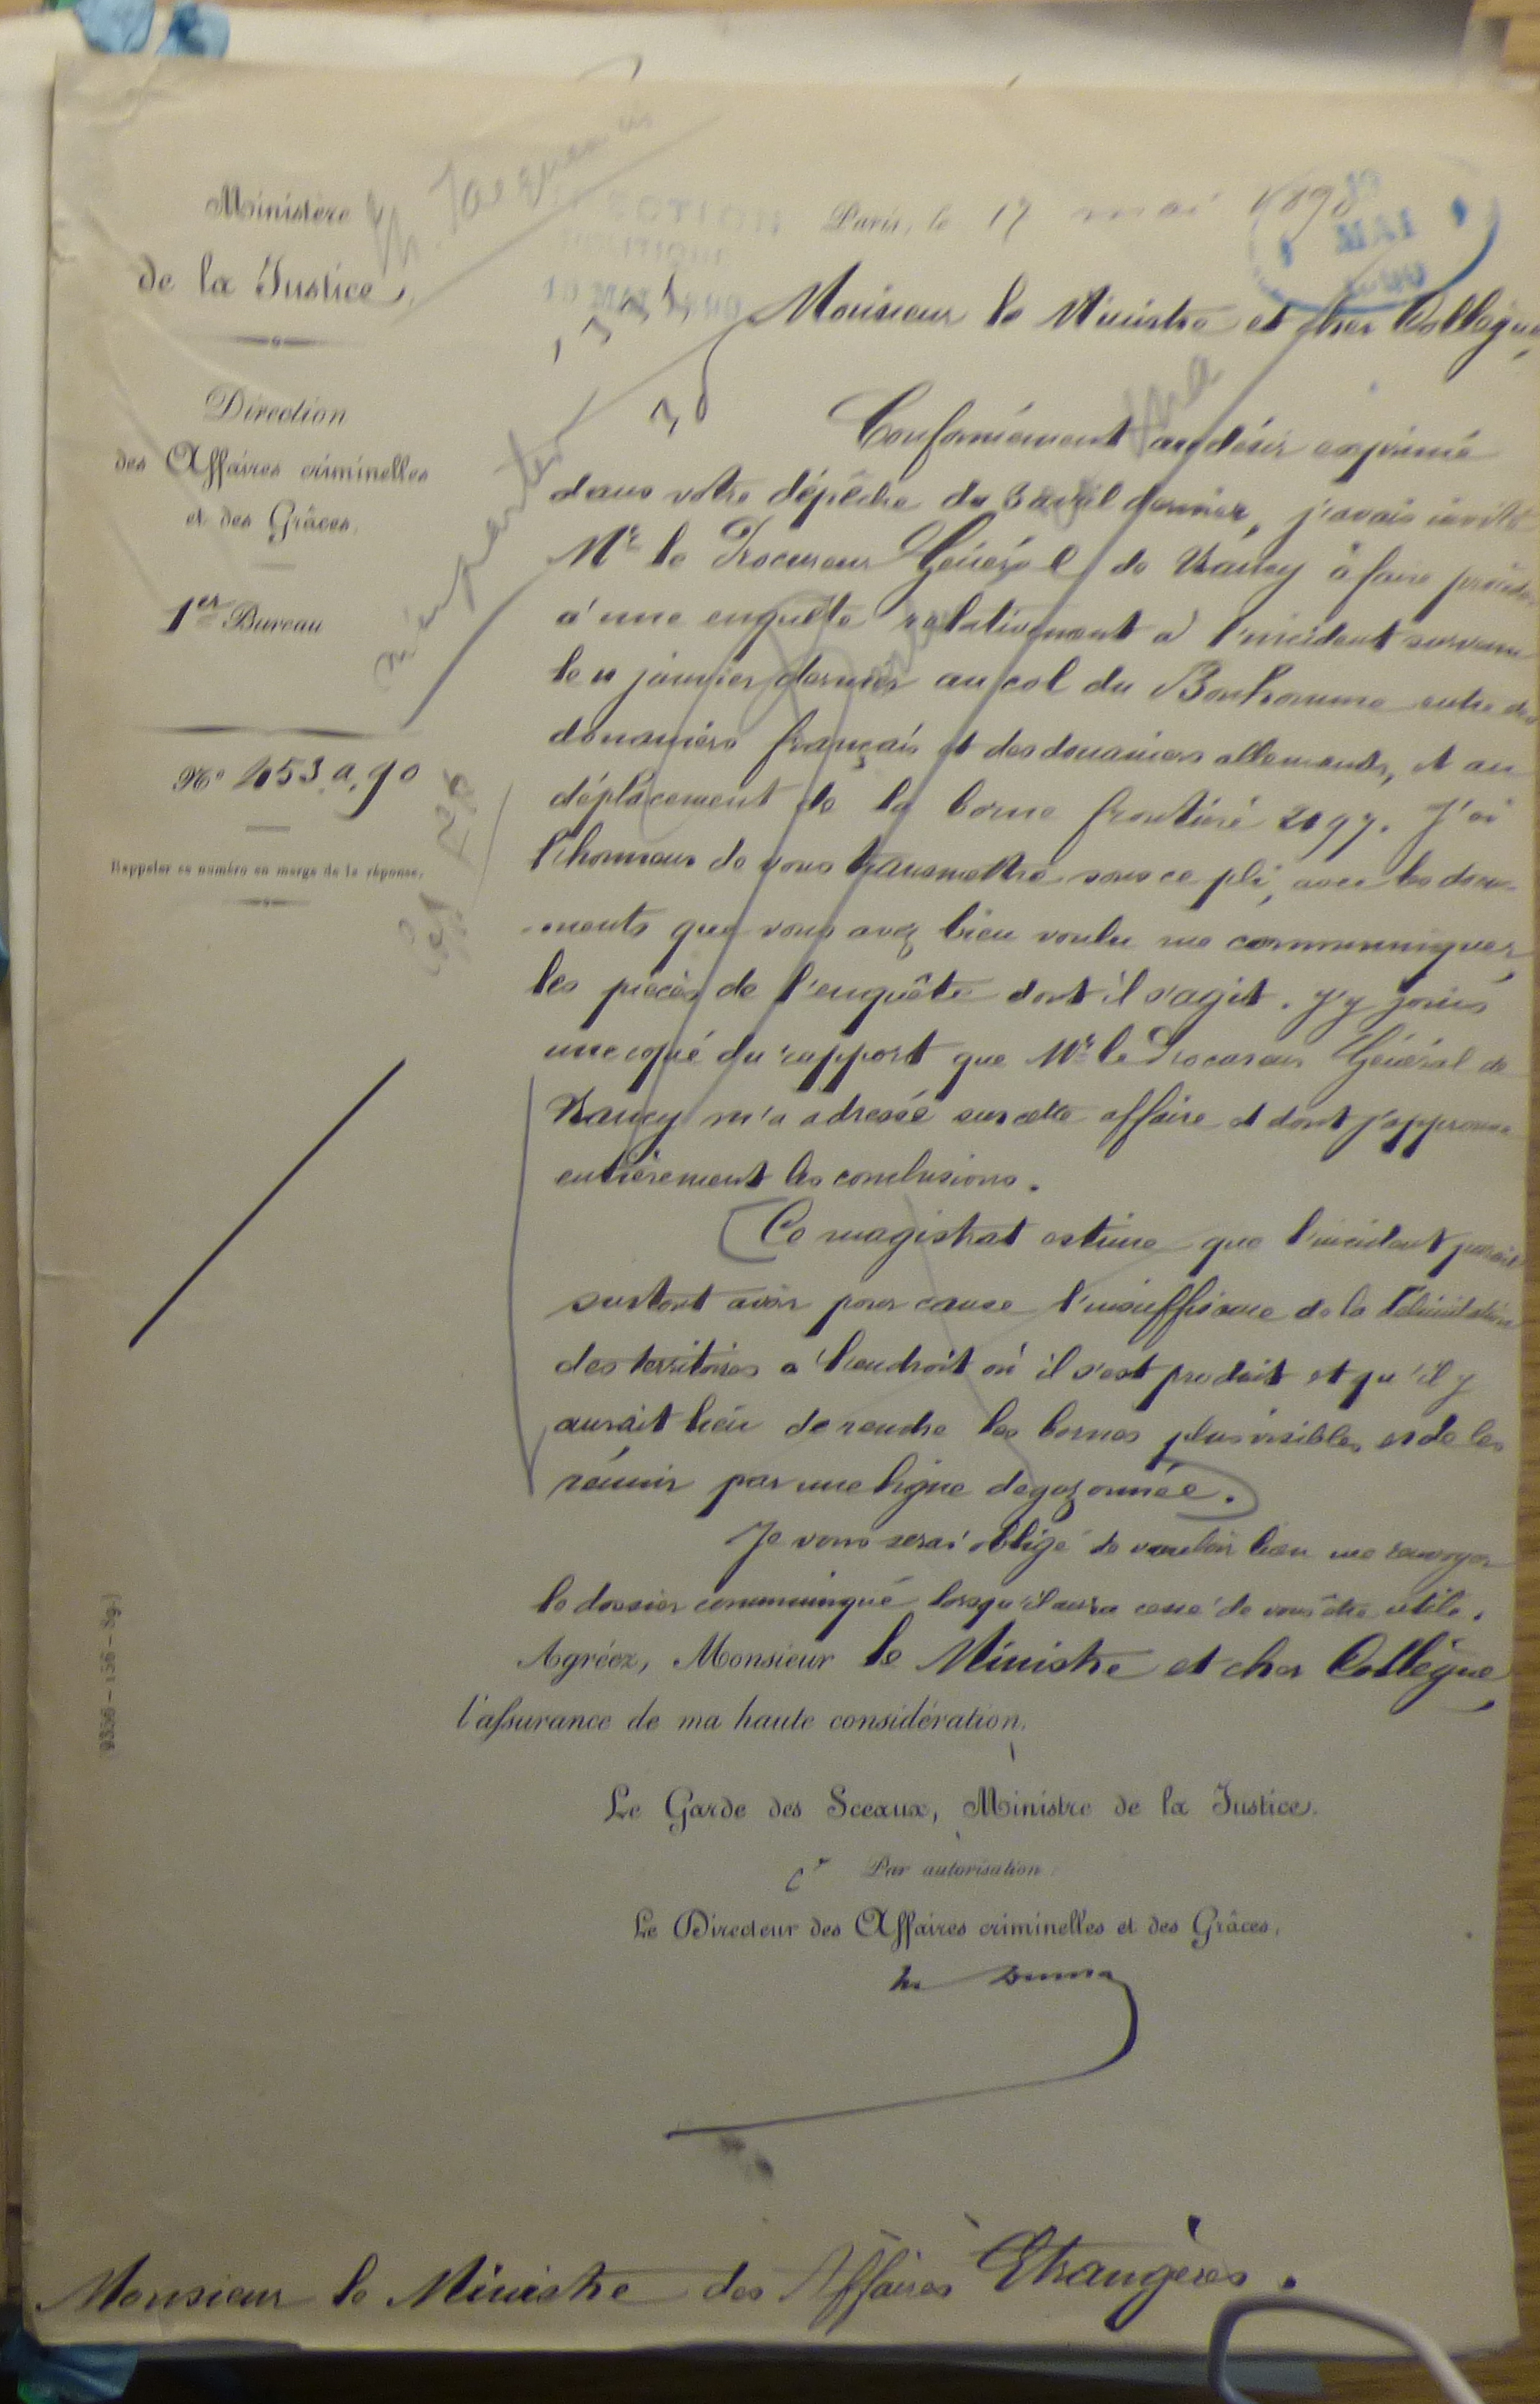 Ministère
de la Justice.
Direction
des Affaires criminelles
et des Grâces.
1er Bureau
No 453.a.90
Rappeler ce numéro en marge de la réponse.
Paris, le 17 mai
Monsieur le Ministre et cher Collègue,
Conformément au désir exprimé
dans votre dépêche du 3 avril dernier, j'avais invité
Mr le Procureur Général de Nancy à faire procéder
à une enquête relativement à l'incident survenu
le 11 janvier dernier au col du Bonhomme entre des
douaniers français et des douaniers allemands, et au
déplacement de la borne frontière 2097. J'ai
l'honneur de vous transmettre sous ce pli, avec les docu-
-ments que vous avez bien voulu me communiquer,
les pièces de l'enquête dont il s'agit. J'y joins
une copie du rapport que Mr le Procureur Général de
Nancy m'a adressé sur cette affaire et dont j'approuve
entièrement les conclusions.
Ce magistrat estime que l'incident paraît
surtout avoir pour cause l'insuffisance de la délimitation
des territoires à l'endroit où il s'est produit et qu'il y
aurait lieu de rendre les bornes plus visibles et de les
réunir par une ligne dégazonnée.
Je vous serai obligé de vouloir bien me renvoyer
le dossier communiqué lorsqu'il aura cessé de vous être utile.
Agréez, Monsieur le Ministre et cher Collègue,
l'assurance de ma haute considération.
Le Garde des Sceaux, Ministre de la Justice.
Par autorisation
Le Directeur des Affaires criminelles et des Grâces.
Monsieur le Ministre des Affaires Etrangères.